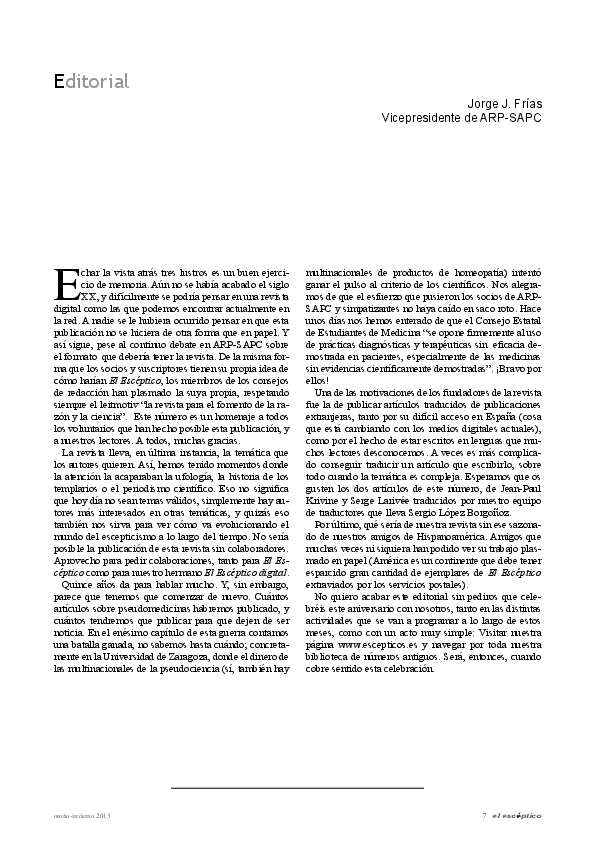 Editorial
Jorge J. Frías
Vicepresidente de ARP-SAPC
Echar la vista atrás tres lustros es un buen ejerci-
cio de memoria. Aún no se había acabado el siglo
XX, y difícilmente se podría pensar en una revista
digital como las que podemos encontrar actualmente en
la red. A nadie se le hubiera ocurrido pensar en que esta
publicación no se hiciera de otra forma que en papel. Y
así sigue, pese al continuo debate en ARP-SAPC sobre
el formato que debería tener la revista. De la misma for-
ma que los socios y suscriptores tienen su propia idea de
cómo harían El Escéptico, los miembros de los consejos
de redacción han plasmado la suya propia, respetando
siempre el leitmotiv “la revista para el fomento de la ra-
zón y la ciencia”. Este número es un homenaje a todos
los voluntarios que han hecho posible esta publicación, y
a nuestros lectores. A todos, muchas gracias.
La revista lleva, en última instancia, la temática que
los autores quieren. Así, hemos tenido momentos donde
la atención la acaparaban la ufología, la historia de los
templarios o el periodismo científico. Eso no significa
que hoy día no sean temas válidos, simplemente hay au-
tores más interesados en otras temáticas, y quizás eso
también nos sirva para ver cómo va evolucionando el
mundo del escepticismo a lo largo del tiempo. No sería
posible la publicación de esta revista sin colaboradores.
Aprovecho para pedir colaboraciones, tanto para El Es-
céptico como para nuestro hermano El Escéptico digital.
Quince años da para hablar mucho. Y, sin embargo,
parece que tenemos que comenzar de nuevo. Cuántos
artículos sobre pseudomedicinas habremos publicado, y
cuántos tendremos que publicar para que dejen de ser
noticia. En el enésimo capítulo de esta guerra contamos
una batalla ganada, no sabemos hasta cuándo; concreta-
mente en la Universidad de Zaragoza, donde el dinero de
las multinacionales de la pseudociencia (sí, también hay
multinacionales de productos de homeopatía) intentó
ganar el pulso al criterio de los científicos. Nos alegra-
mos de que el esfuerzo que pusieron los socios de ARP-
SAPC y simpatizantes no haya caído en saco roto. Hace
unos días nos hemos enterado de que el Consejo Estatal
de Estudiantes de Medicina “se opone firmemente al uso
de prácticas diagnósticas y terapéuticas sin eficacia de-
mostrada en pacientes, especialmente de las medicinas
sin evidencias científicamente demostradas”. ¡Bravo por
ellos!
Una de las motivaciones de los fundadores de la revista
fue la de publicar artículos traducidos de publicaciones
extranjeras, tanto por su difícil acceso en España (cosa
que está cambiando con los medios digitales actuales),
como por el hecho de estar escritos en lenguas que mu-
chos lectores desconocemos. A veces es más complica-
do conseguir traducir un artículo que escribirlo, sobre
todo cuando la temática es compleja. Esperamos que os
gusten los dos artículos de este número, de Jean-Paul
Krivine y Serge Larivée traducidos por nuestro equipo
de traductores que lleva Sergio López Borgoñoz.
Por último, qué sería de nuestra revista sin ese sazona-
do de nuestros amigos de Hispanoamérica. Amigos que
muchas veces ni siquiera han podido ver su trabajo plas-
mado en papel (América es un continente que debe tener
esparcido gran cantidad de ejemplares de El Escéptico
extraviados por los servicios postales).
No quiero acabar este editorial sin pediros que cele-
bréis este aniversario con nosotros, tanto en las distintas
actividades que se van a programar a lo largo de estos
meses, como con un acto muy simple: Visitar nuestra
página www.escepticos.es y navegar por toda nuestra
biblioteca de números antiguos. Será, entonces, cuando
cobre sentido esta celebración.
otoño-invierno 2013
7 el escéptico